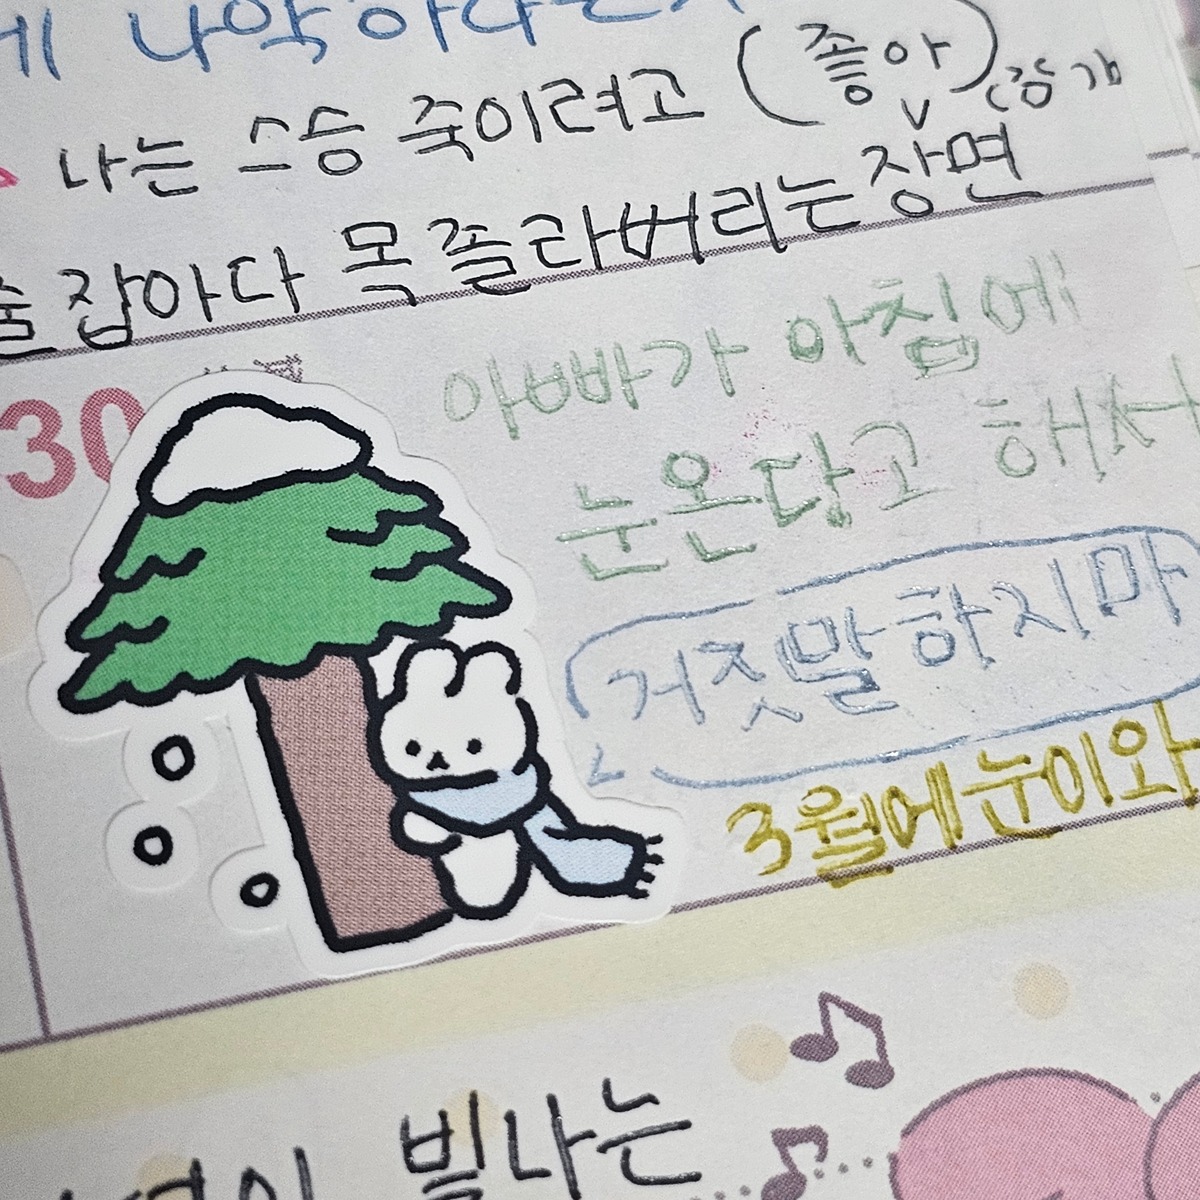 에 나약하다는
나는 스승 죽이려고 (좋아)
줄 잡아다 목 졸라버리는 장면
30
아빠가 아침에
눈온다고 해서
거짓말하지마
3월에 눈이와
빛나는